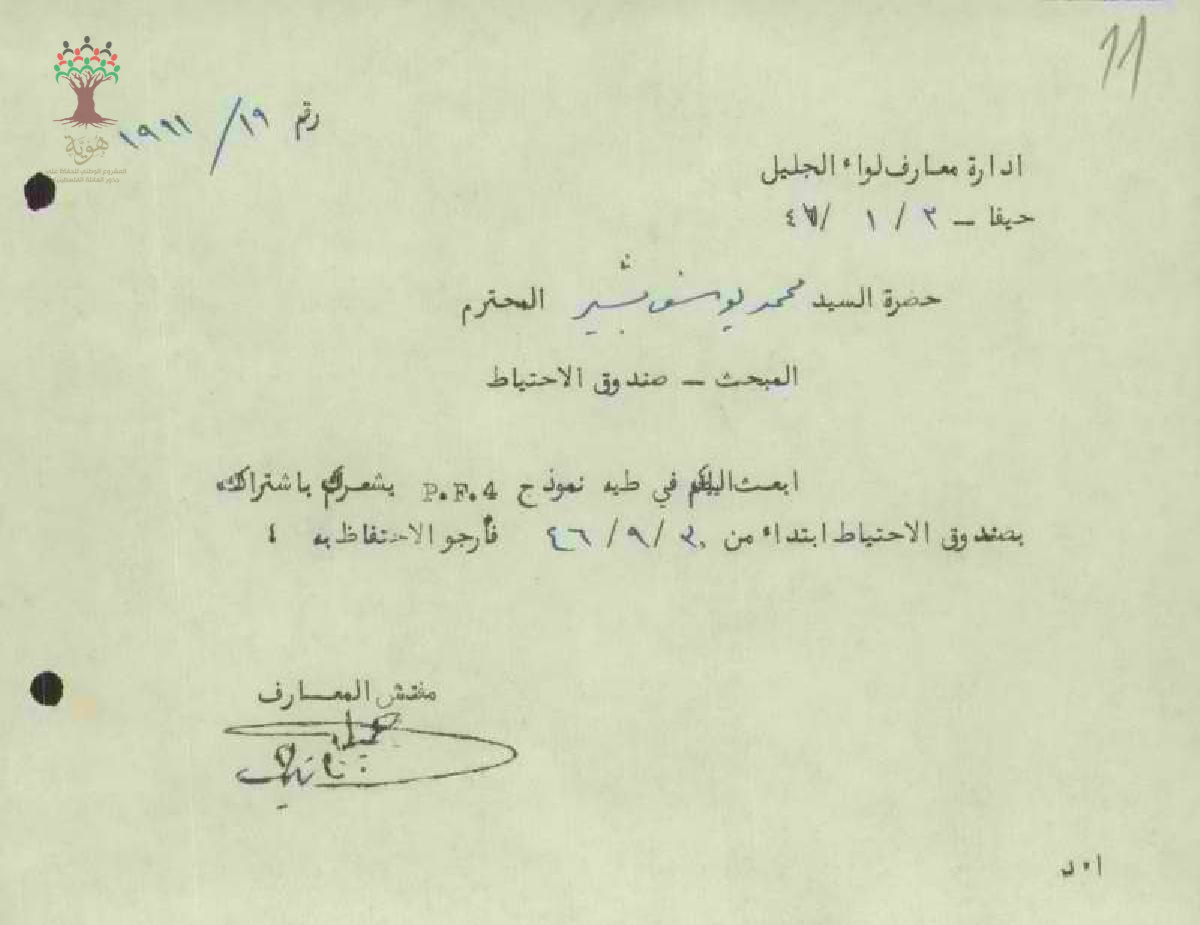 11
رقم ١٩/ ١٩٩١
هوية
ادارة معارف لواء الجليل
حيفا – ٢ / ١ /٤٧
حضرة السيد محمد يوسف بشير المحترم
المبحث – صندوق الاحتياط
ابعث اليكم في طيه نموذج P.F.4 يشعركم باشتراككم
بصندوق الاحتياط ابتداء من ٣٠/ ٩ /٤٦ فأرجو الاحتفاظ به ؛
مفتش المعارف
ا ٠ د